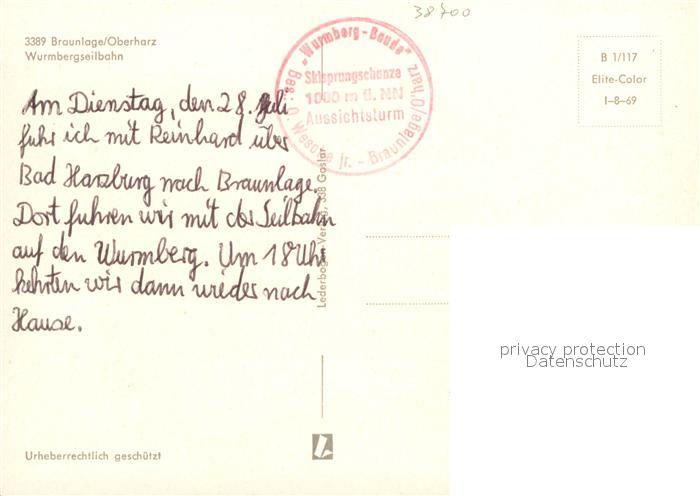 38700
3389 Braunlage/Oberharz
Wurmbergseilbahn
„Wurmberg-Baude"
Skisprungschanze
1000 m ü. NN
Aussichtsturm
Bes. O. Wesche jr. - Braunlage/O.harz
B 1/117
Elite-Color
I-8-69
Am Dienstag, den 28. Juli
fuhr ich mit Reinhard über
Bad Harzburg nach Braunlage.
Dort fuhren wir mit der Seilbahn
auf den Wurmberg. Um 18 Uhr
kehrten wir dann wieder nach
Hause.
338 Goslar
privacy protection
Datenschutz
Urheberrechtlich geschützt